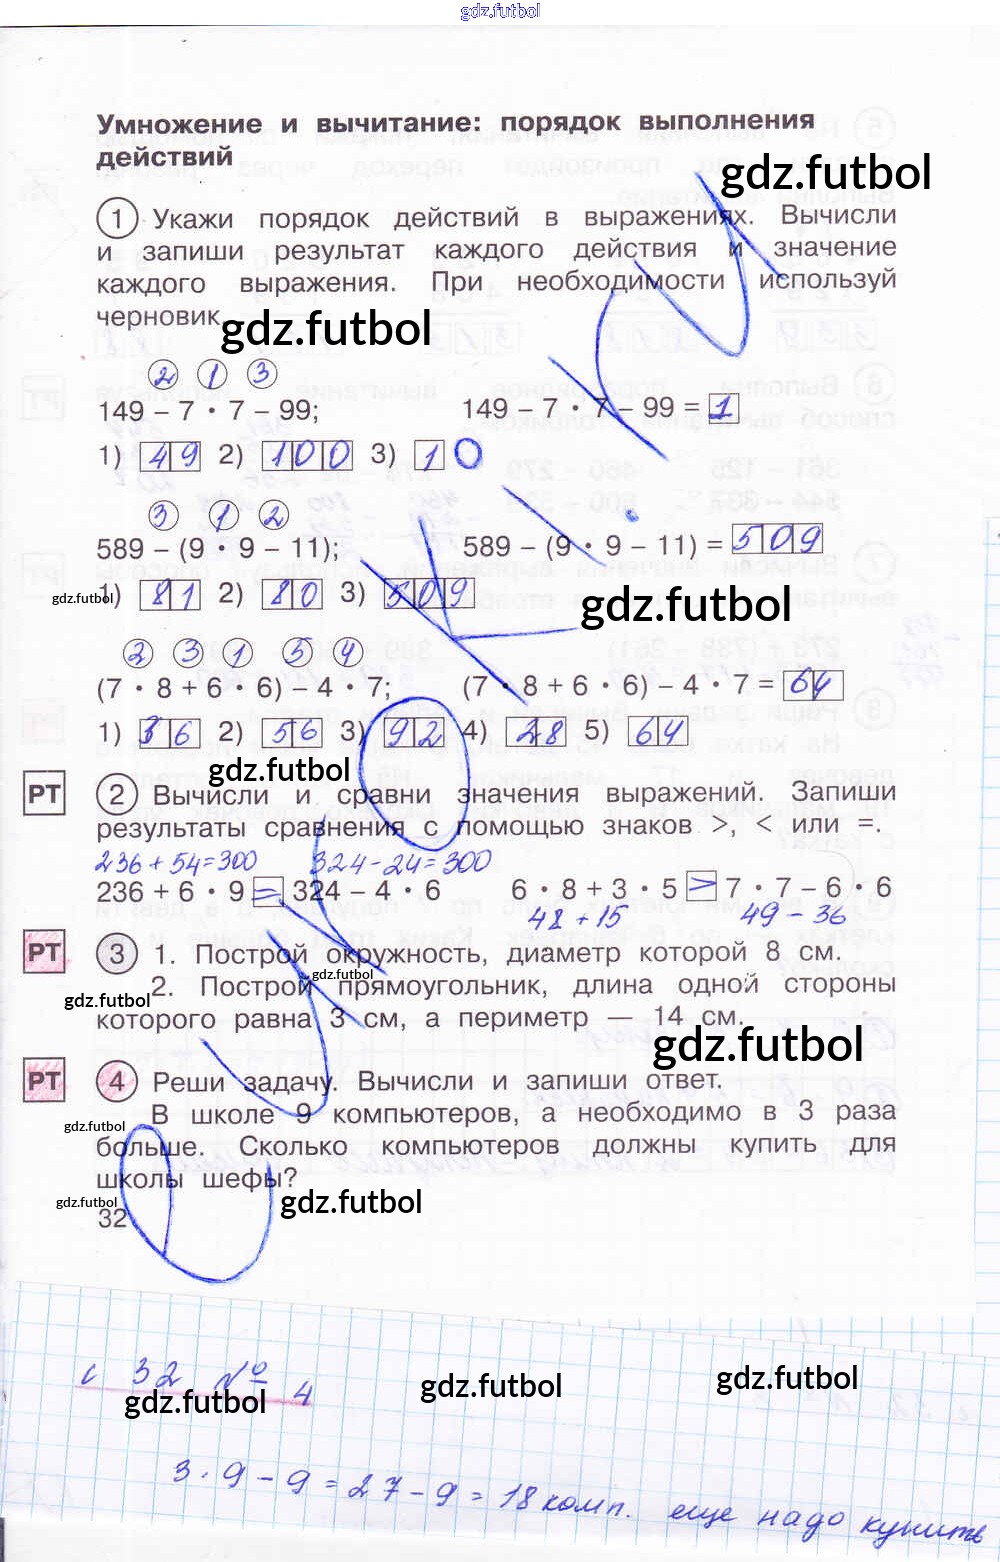 gdz.futbol
Умножение и вычитание: порядок выполнения
действий
gdz.futbol
1 Укажи порядок действий в выражениях. Вычисли
и запиши результат каждого действия и значение
каждого выражения. При необходимости используй
черновик.
gdz.futbol
2 1 3
149 – 7 · 7 – 99; 149 – 7 · 7 – 99 = 1
1) 49 2) 100 3) 1
3 1 2
589 – (9 · 9 – 11); 589 – (9 · 9 – 11) = 509
gdz.futbol
1) 81 2) 80 3) 509
gdz.futbol
2 3 1 5 4
(7 · 8 + 6 · 6) – 4 · 7; (7 · 8 + 6 · 6) – 4 · 7 = 64
1) 36 2) 56 3) 92 4) 28 5) 64
gdz.futbol
РТ 2 Вычисли и сравни значения выражений. Запиши
результаты сравнения с помощью знаков >, < или =.
236 + 54 = 300 324 - 24 = 300
236 + 6 · 9 = 324 – 4 · 6 6 · 8 + 3 · 5 > 7 · 7 – 6 · 6
48 + 15 49 - 36
РТ 3 1. Построй окружность, диаметр которой 8 см.
gdz.futbol
2. Построй прямоугольник, длина одной стороны
gdz.futbol
которого равна 3 см, а периметр — 14 см.
gdz.futbol
РТ 4 Реши задачу. Вычисли и запиши ответ.
В школе 9 компьютеров, а необходимо в 3 раза
gdz.futbol
больше. Сколько компьютеров должны купить для
школы шефы?
gdz.futbol
gdz.futbol
32
с 32 № 4
gdz.futbol
gdz.futbol
gdz.futbol
3 · 9 - 9 = 27 - 9 = 18 комп. еще надо купить